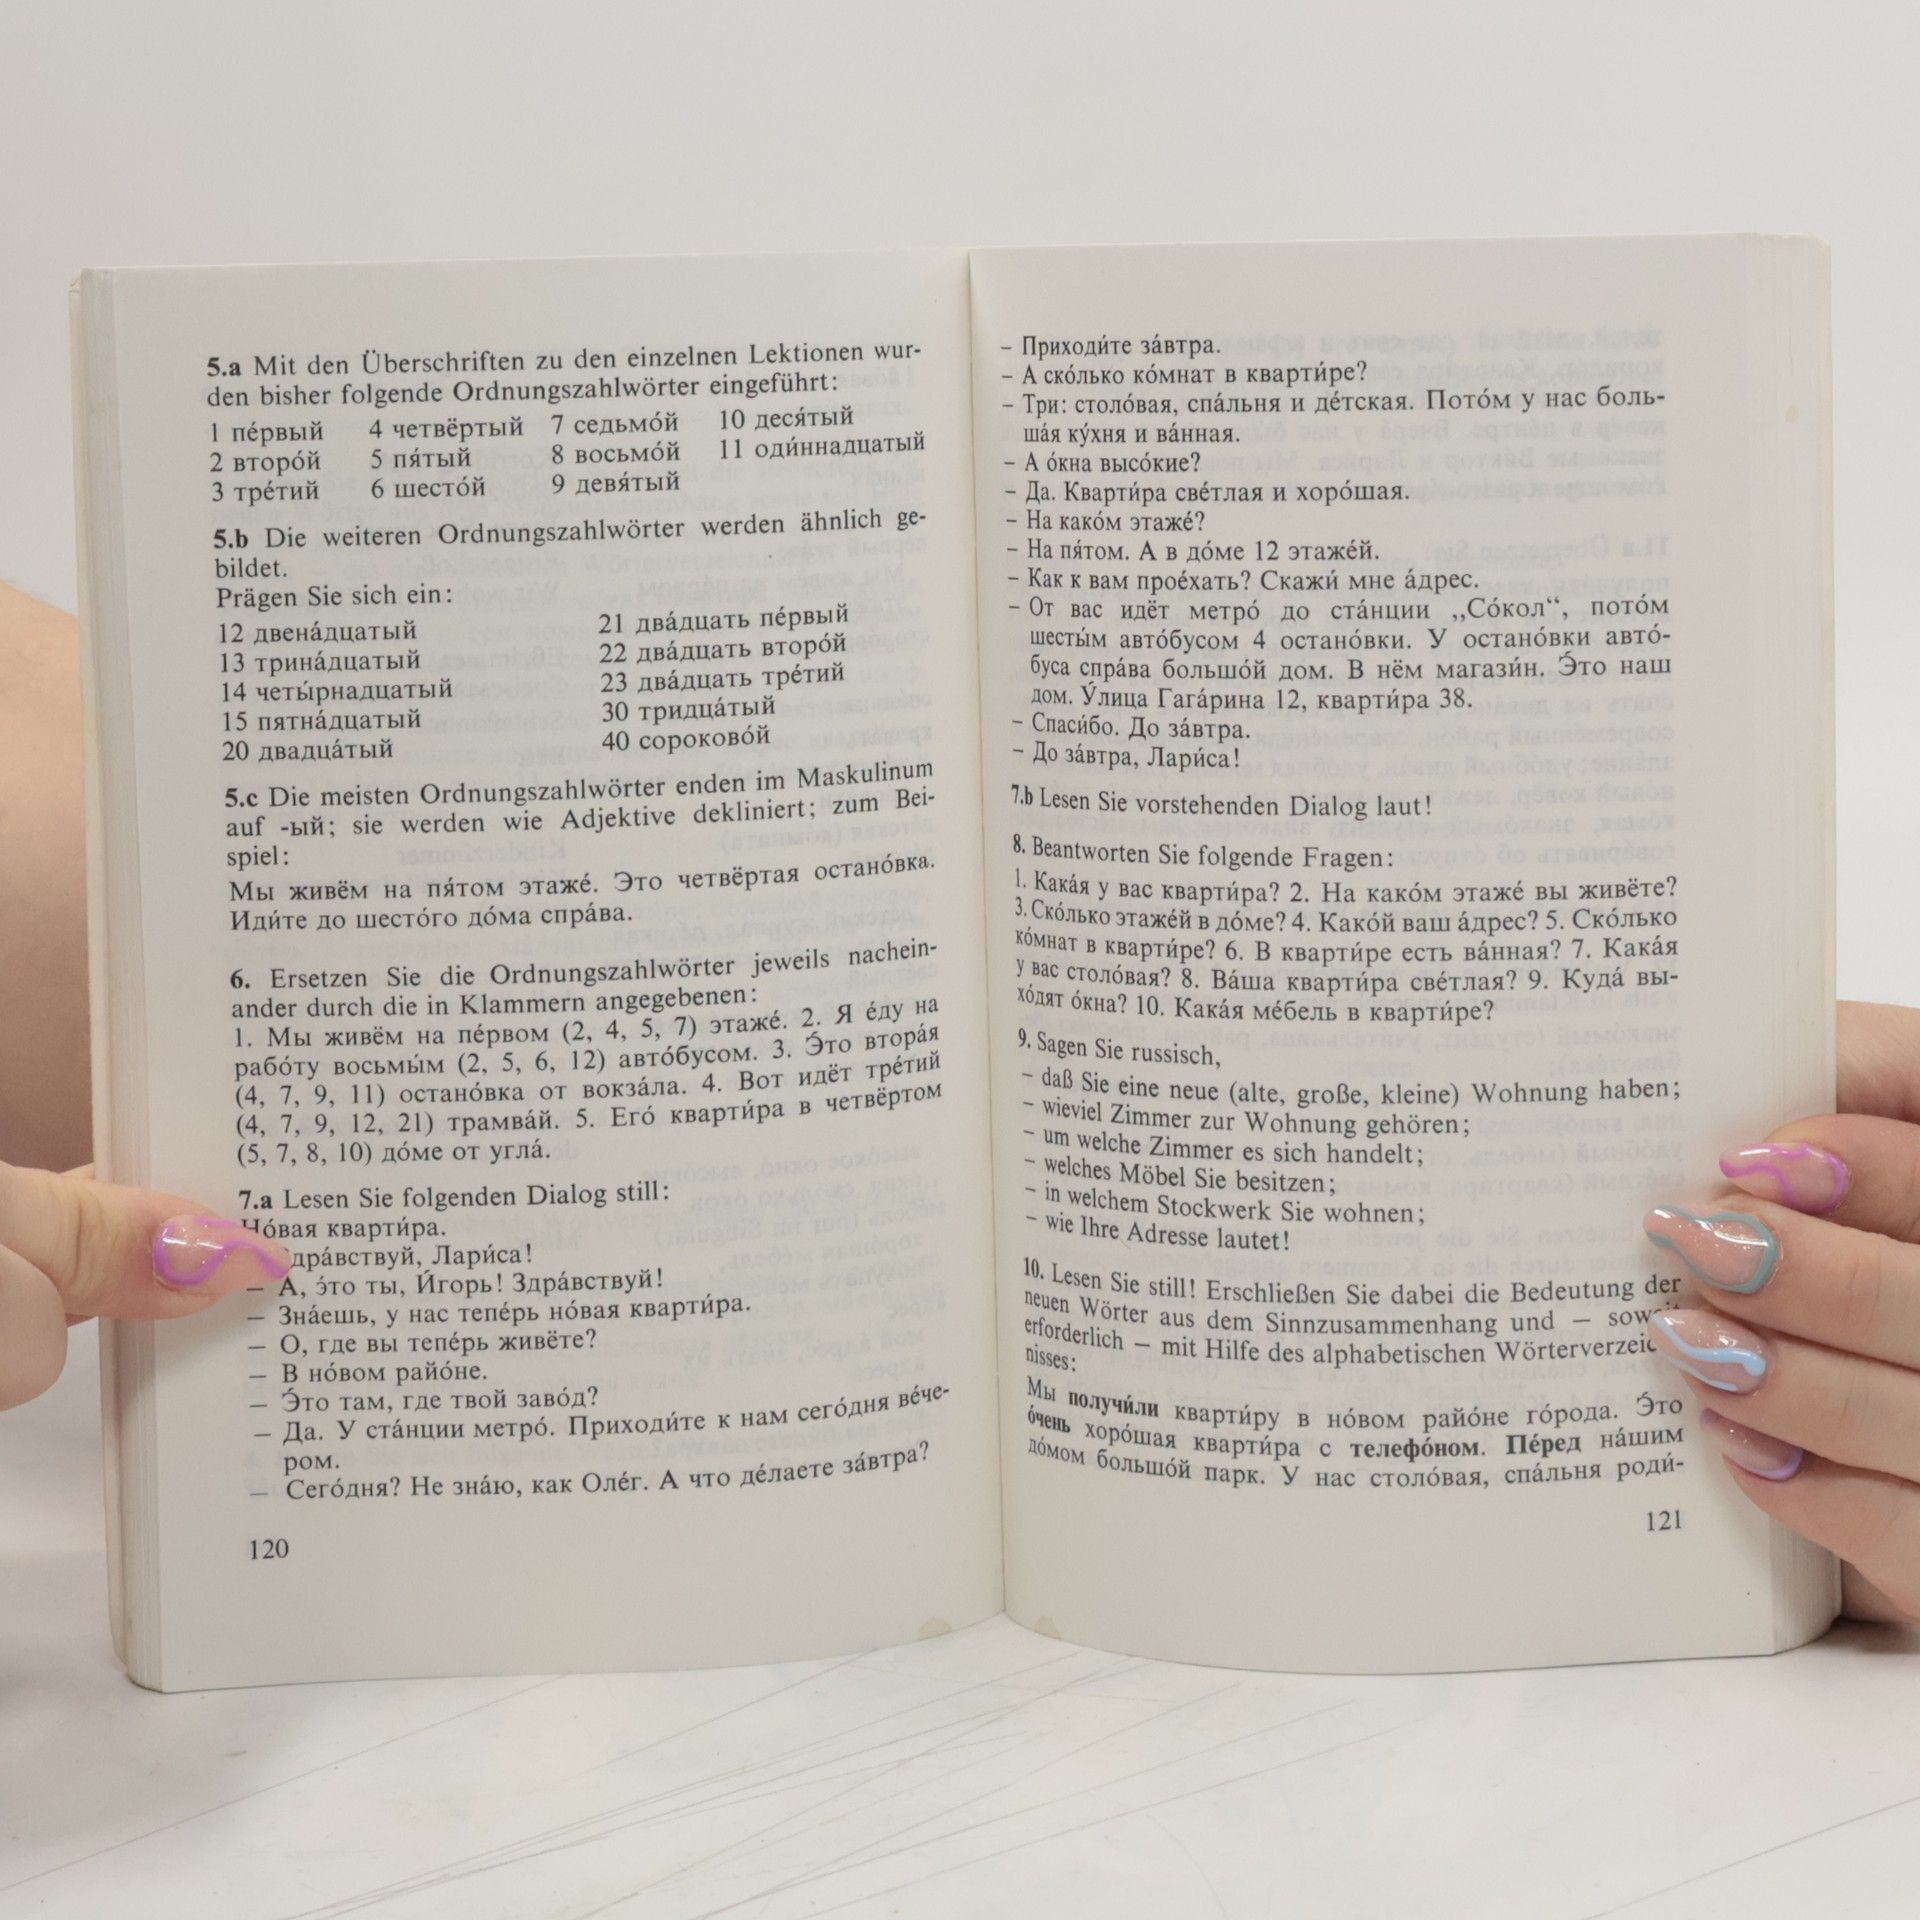 5.a Mit den Überschriften zu den einzelnen Lektionen wur-
den bisher folgende Ordnungszahlwörter eingeführt:
1 пе́рвый 4 четвёртый 7 седьмо́й 10 деся́тый
2 второ́й 5 пя́тый 8 восьмо́й 11 оди́ннадцатый
3 тре́тий 6 шесто́й 9 девя́тый
5.b Die weiteren Ordnungszahlwörter werden ähnlich ge-
bildet.
Prägen Sie sich ein:
12 двена́дцатый 21 два́дцать пе́рвый
13 трина́дцатый 22 два́дцать второ́й
14 четы́рнадцатый 23 два́дцать тре́тий
15 пятна́дцатый 30 тридца́тый
20 двадца́тый 40 сороково́й
5.c Die meisten Ordnungszahlwörter enden im Maskulinum
auf -ый; sie werden wie Adjektive dekliniert; zum Bei-
spiel:
Мы живём на пя́том этаже́. Это четвёртая остано́вка.
Иди́те до шесто́го до́ма спра́ва.
6. Ersetzen Sie die Ordnungszahlwörter jeweils nachein-
ander durch die in Klammern angegebenen:
1. Мы живём на пе́рвом (2, 4, 5, 7) этаже́. 2. Я е́ду на
рабо́ту восьмы́м (2, 5, 6, 12) авто́бусом. 3. Э́то втора́я
(4, 7, 9, 11) остано́вка от вокза́ла. 4. Вот идёт тре́тий
(4, 7, 9, 12, 21) трамва́й. 5. Его́ кварти́ра в четвёртом
(5, 7, 8, 10) до́ме от угла́.
7.a Lesen Sie folgenden Dialog still:
Но́вая кварти́ра.
дра́вствуй, Лари́са!
– А, э́то ты, И́горь! Здра́вствуй!
– Зна́ешь, у нас тепе́рь но́вая кварти́ра.
– О, где вы тепе́рь живёте?
– В но́вом райо́не.
– Э́то там, где твой заво́д?
– Да. У ста́нции метро́. Приходи́те к нам сего́дня ве́че-
ром.
– Сего́дня? Не зна́ю, как Оле́г. А что де́лаете за́втра?
120
– Приходи́те за́втра.
– А ско́лько ко́мнат в кварти́ре?
– Три: столо́вая, спа́льня и де́тская. Пото́м у нас боль-
ша́я ку́хня и ва́нная.
– А о́кна высо́кие?
– Да. Кварти́ра све́тлая и хоро́шая.
– На како́м этаже́?
– На пя́том. А в до́ме 12 этаже́й.
– Как к вам прое́хать? Скажи́ мне а́дрес.
– От вас идёт метро́ до ста́нции „Со́кол“, пото́м
шесты́м авто́бусом 4 остано́вки. У остано́вки авто́-
буса спра́ва большо́й дом. В нём магази́н. Э́то наш
дом. У́лица Гага́рина 12, кварти́ра 38.
– Спаси́бо. До за́втра.
– До за́втра, Лари́са!
7.b Lesen Sie vorstehenden Dialog laut!
8. Beantworten Sie folgende Fragen:
1. Кака́я у вас кварти́ра? 2. На како́м этаже́ вы живёте?
3. Ско́лько этаже́й в до́ме? 4. Како́й ваш а́дрес? 5. Ско́лько
ко́мнат в кварти́ре? 6. В кварти́ре есть ва́нная? 7. Кака́я
у вас столо́вая? 8. Ва́ша кварти́ра све́тлая? 9. Куда́ вы-
хо́дят о́кна? 10. Кака́я ме́бель в кварти́ре?
9. Sagen Sie russisch,
– daß Sie eine neue (alte, große, kleine) Wohnung haben;
– wieviel Zimmer zur Wohnung gehören;
– um welche Zimmer es sich handelt;
– welches Möbel Sie besitzen;
– in welchem Stockwerk Sie wohnen;
– wie Ihre Adresse lautet!
10. Lesen Sie still! Erschließen Sie dabei die Bedeutung der
neuen Wörter aus dem Sinnzusammenhang und – soweit
erforderlich – mit Hilfe des alphabetischen Wörterverzeic
nisses:
Мы получи́ли кварти́ру в но́вом райо́не го́рода. Э́то
о́чень хоро́шая кварти́ра с телефо́ном. Пе́ред на́шим
до́мом большо́й парк. У нас столо́вая, спа́льня роди́-
121